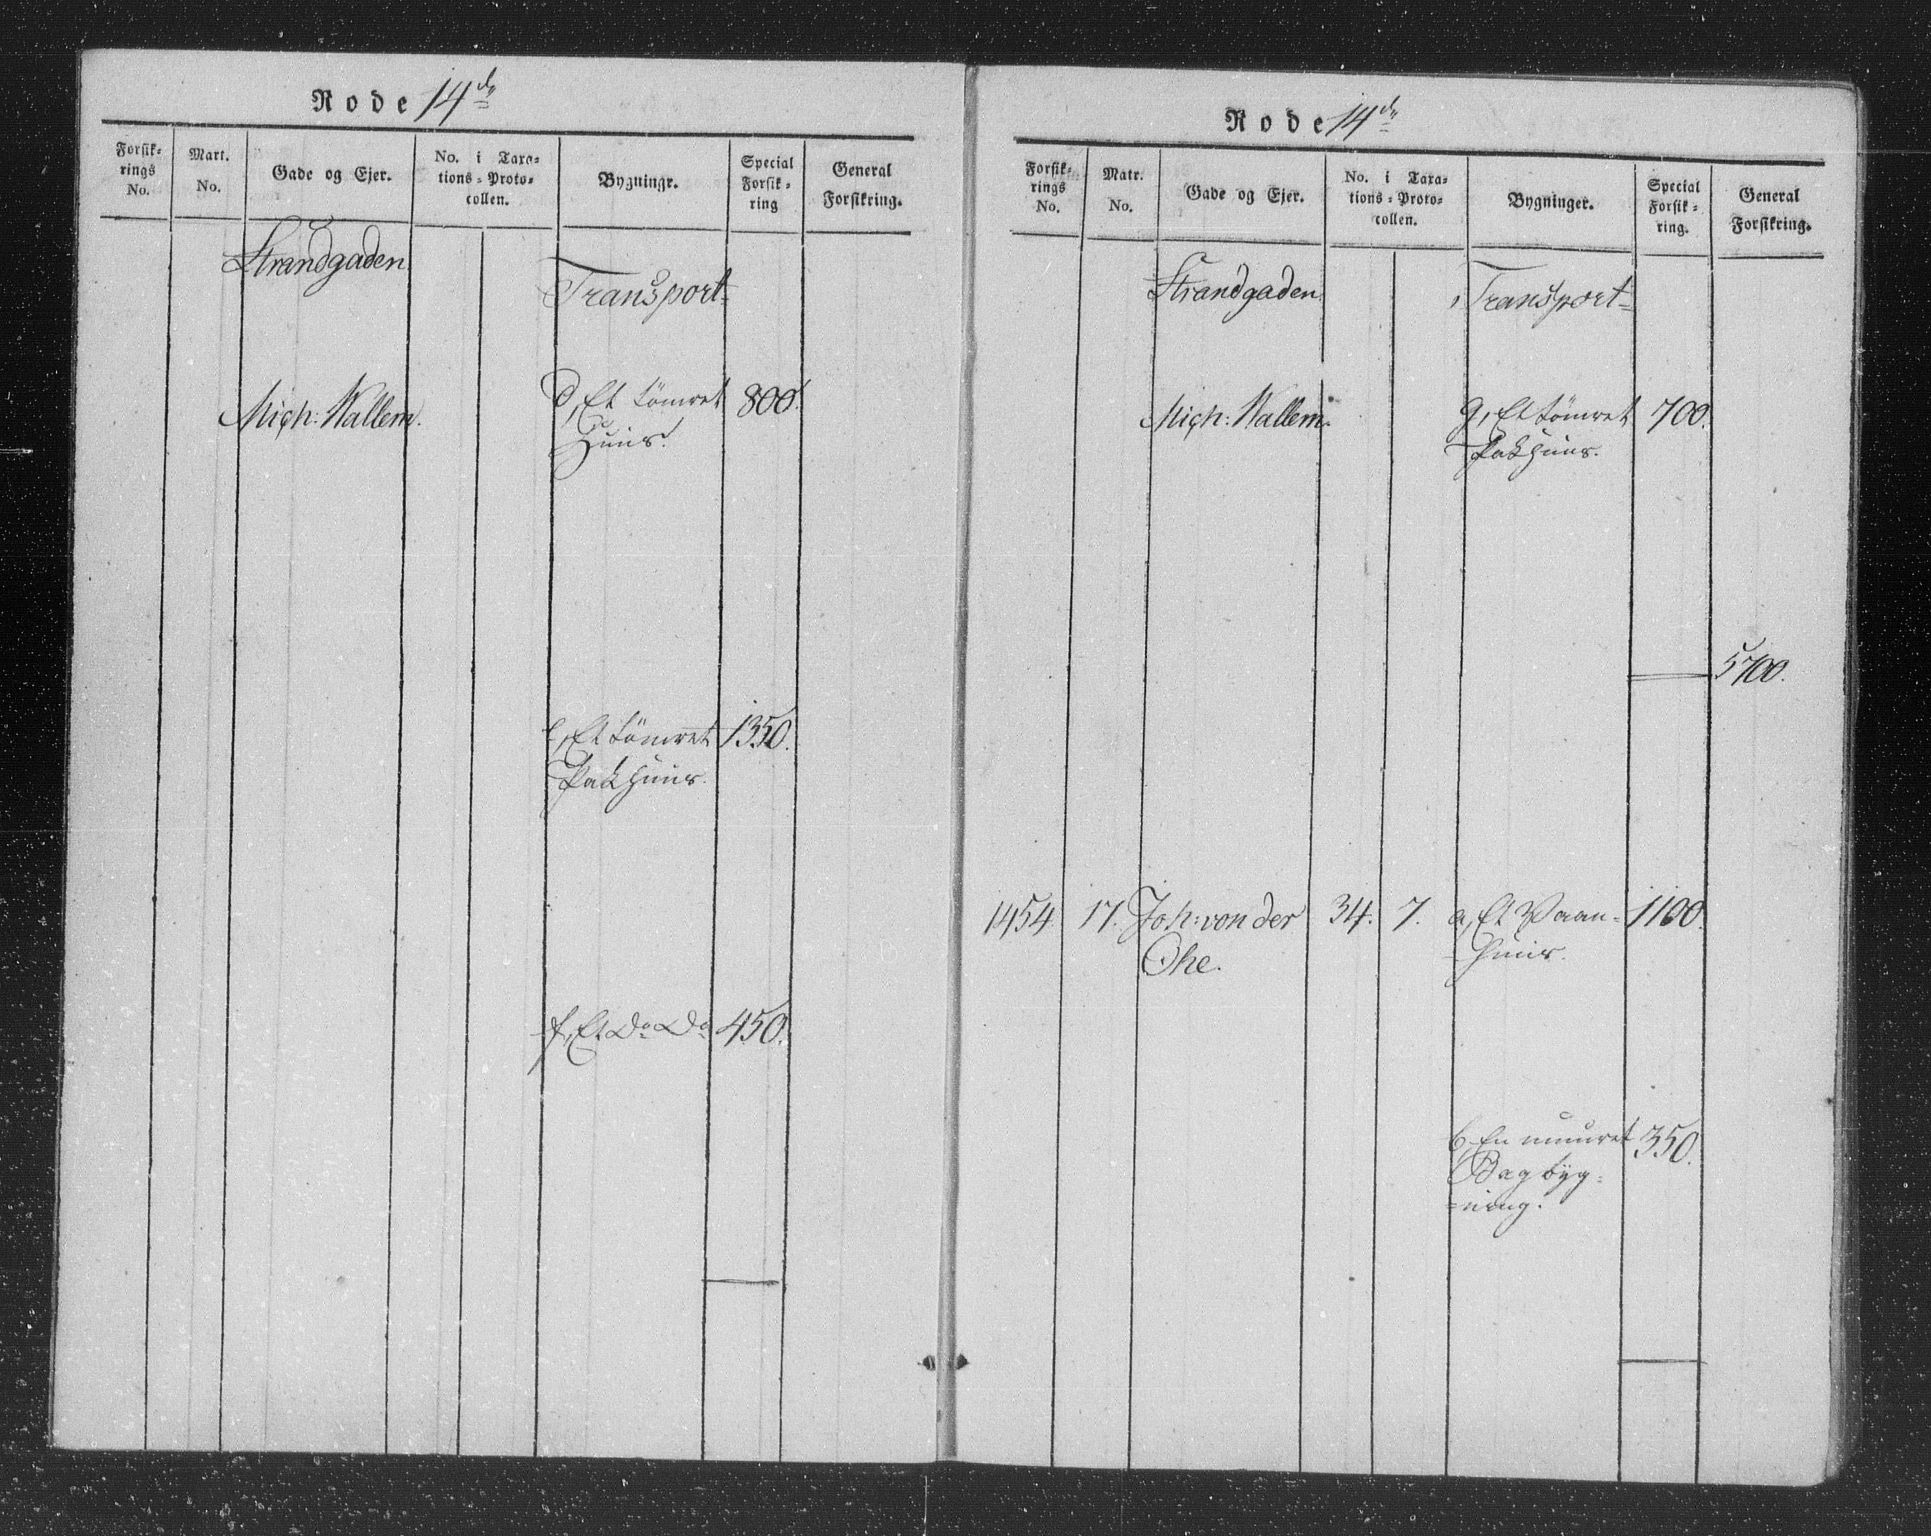 Rode 14de
Forsik-
rings
No.
Mart.
No.
Gade og Ejer.
No. i Taxa-
tions-Proto-
collen.
Bygningr.
Special
Forsik-
ring
General
Forsikring.
Strandgaden
Transport
Mich: Wallem.
d, Et tömret
Huus.
800.
e, Et tömret
Pakhuus.
1350.
f, Et Do Do
450.
Rode 14de
Forsik-
rings
No.
Matr.
No.
Gade og Ejer.
No. i Taxa-
tions-Proto-
collen.
Bygninger.
Special
Forsik-
ring.
General
Forsikring.
Strandgaden
Transport
Mich: Wallem.
g, Et tömret
Pakhuus.
700.
5700.
1454 17. Joh: von der
Ohe.
34. 7.
a, Et Vaan-
huus.
1100.
b, En muuret
Bagbyg-
ning.
350.